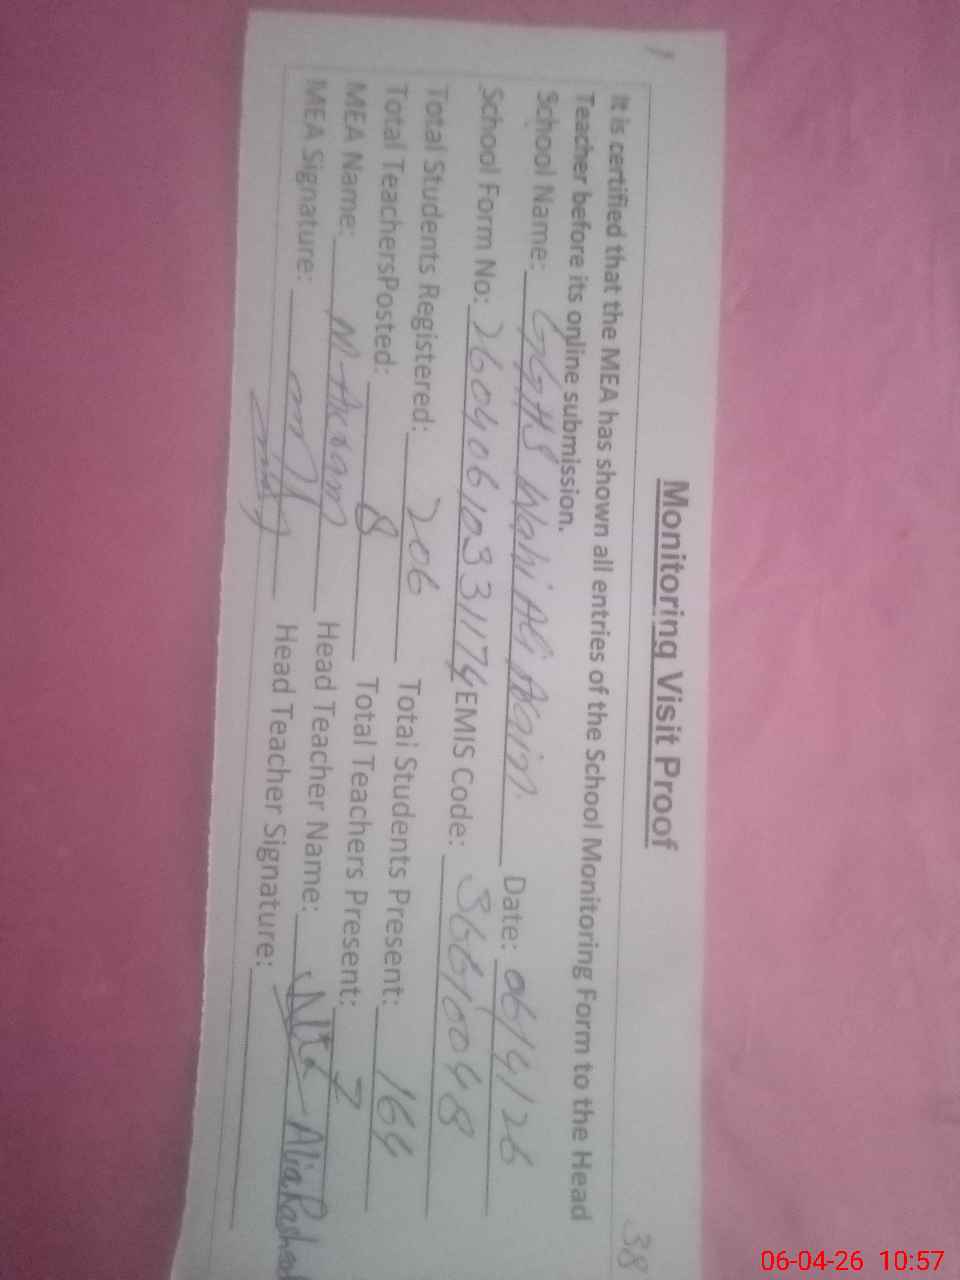 38
Monitoring Visit Proof
It is certified that the MEA has shown all entries of the School Monitoring Form to the Head
Teacher before its online submission.
School Name: GGHS Wahi Ali Arain. Date: 06/4/26
School Form No: 26040610331174 EMIS Code: 36610048
Total Students Registered: 206 Total Students Present: 164
Total TeachersPosted: 8 Total Teachers Present: 7
MEA Name: M. Akram Head Teacher Name: Alia Rasheed
MEA Signature: Head Teacher Signature:
06-04-26 10:57